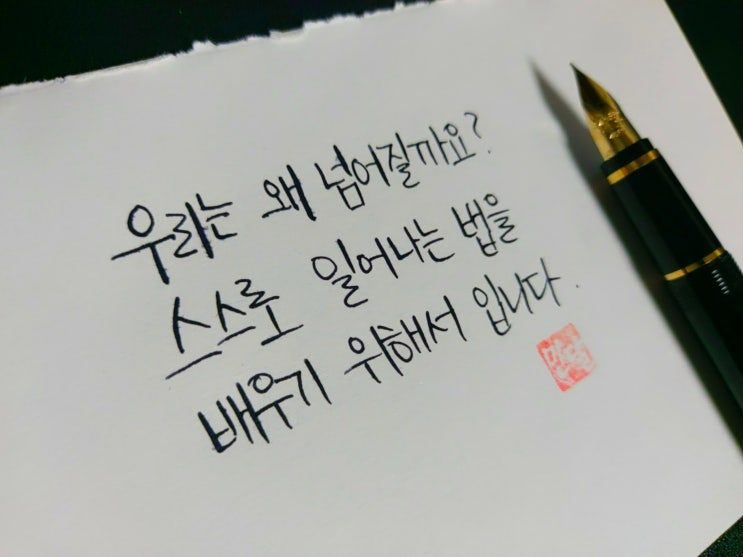 우리는 왜 넘어질까요?
스스로 일어나는 법을
배우기 위해서 입니다.